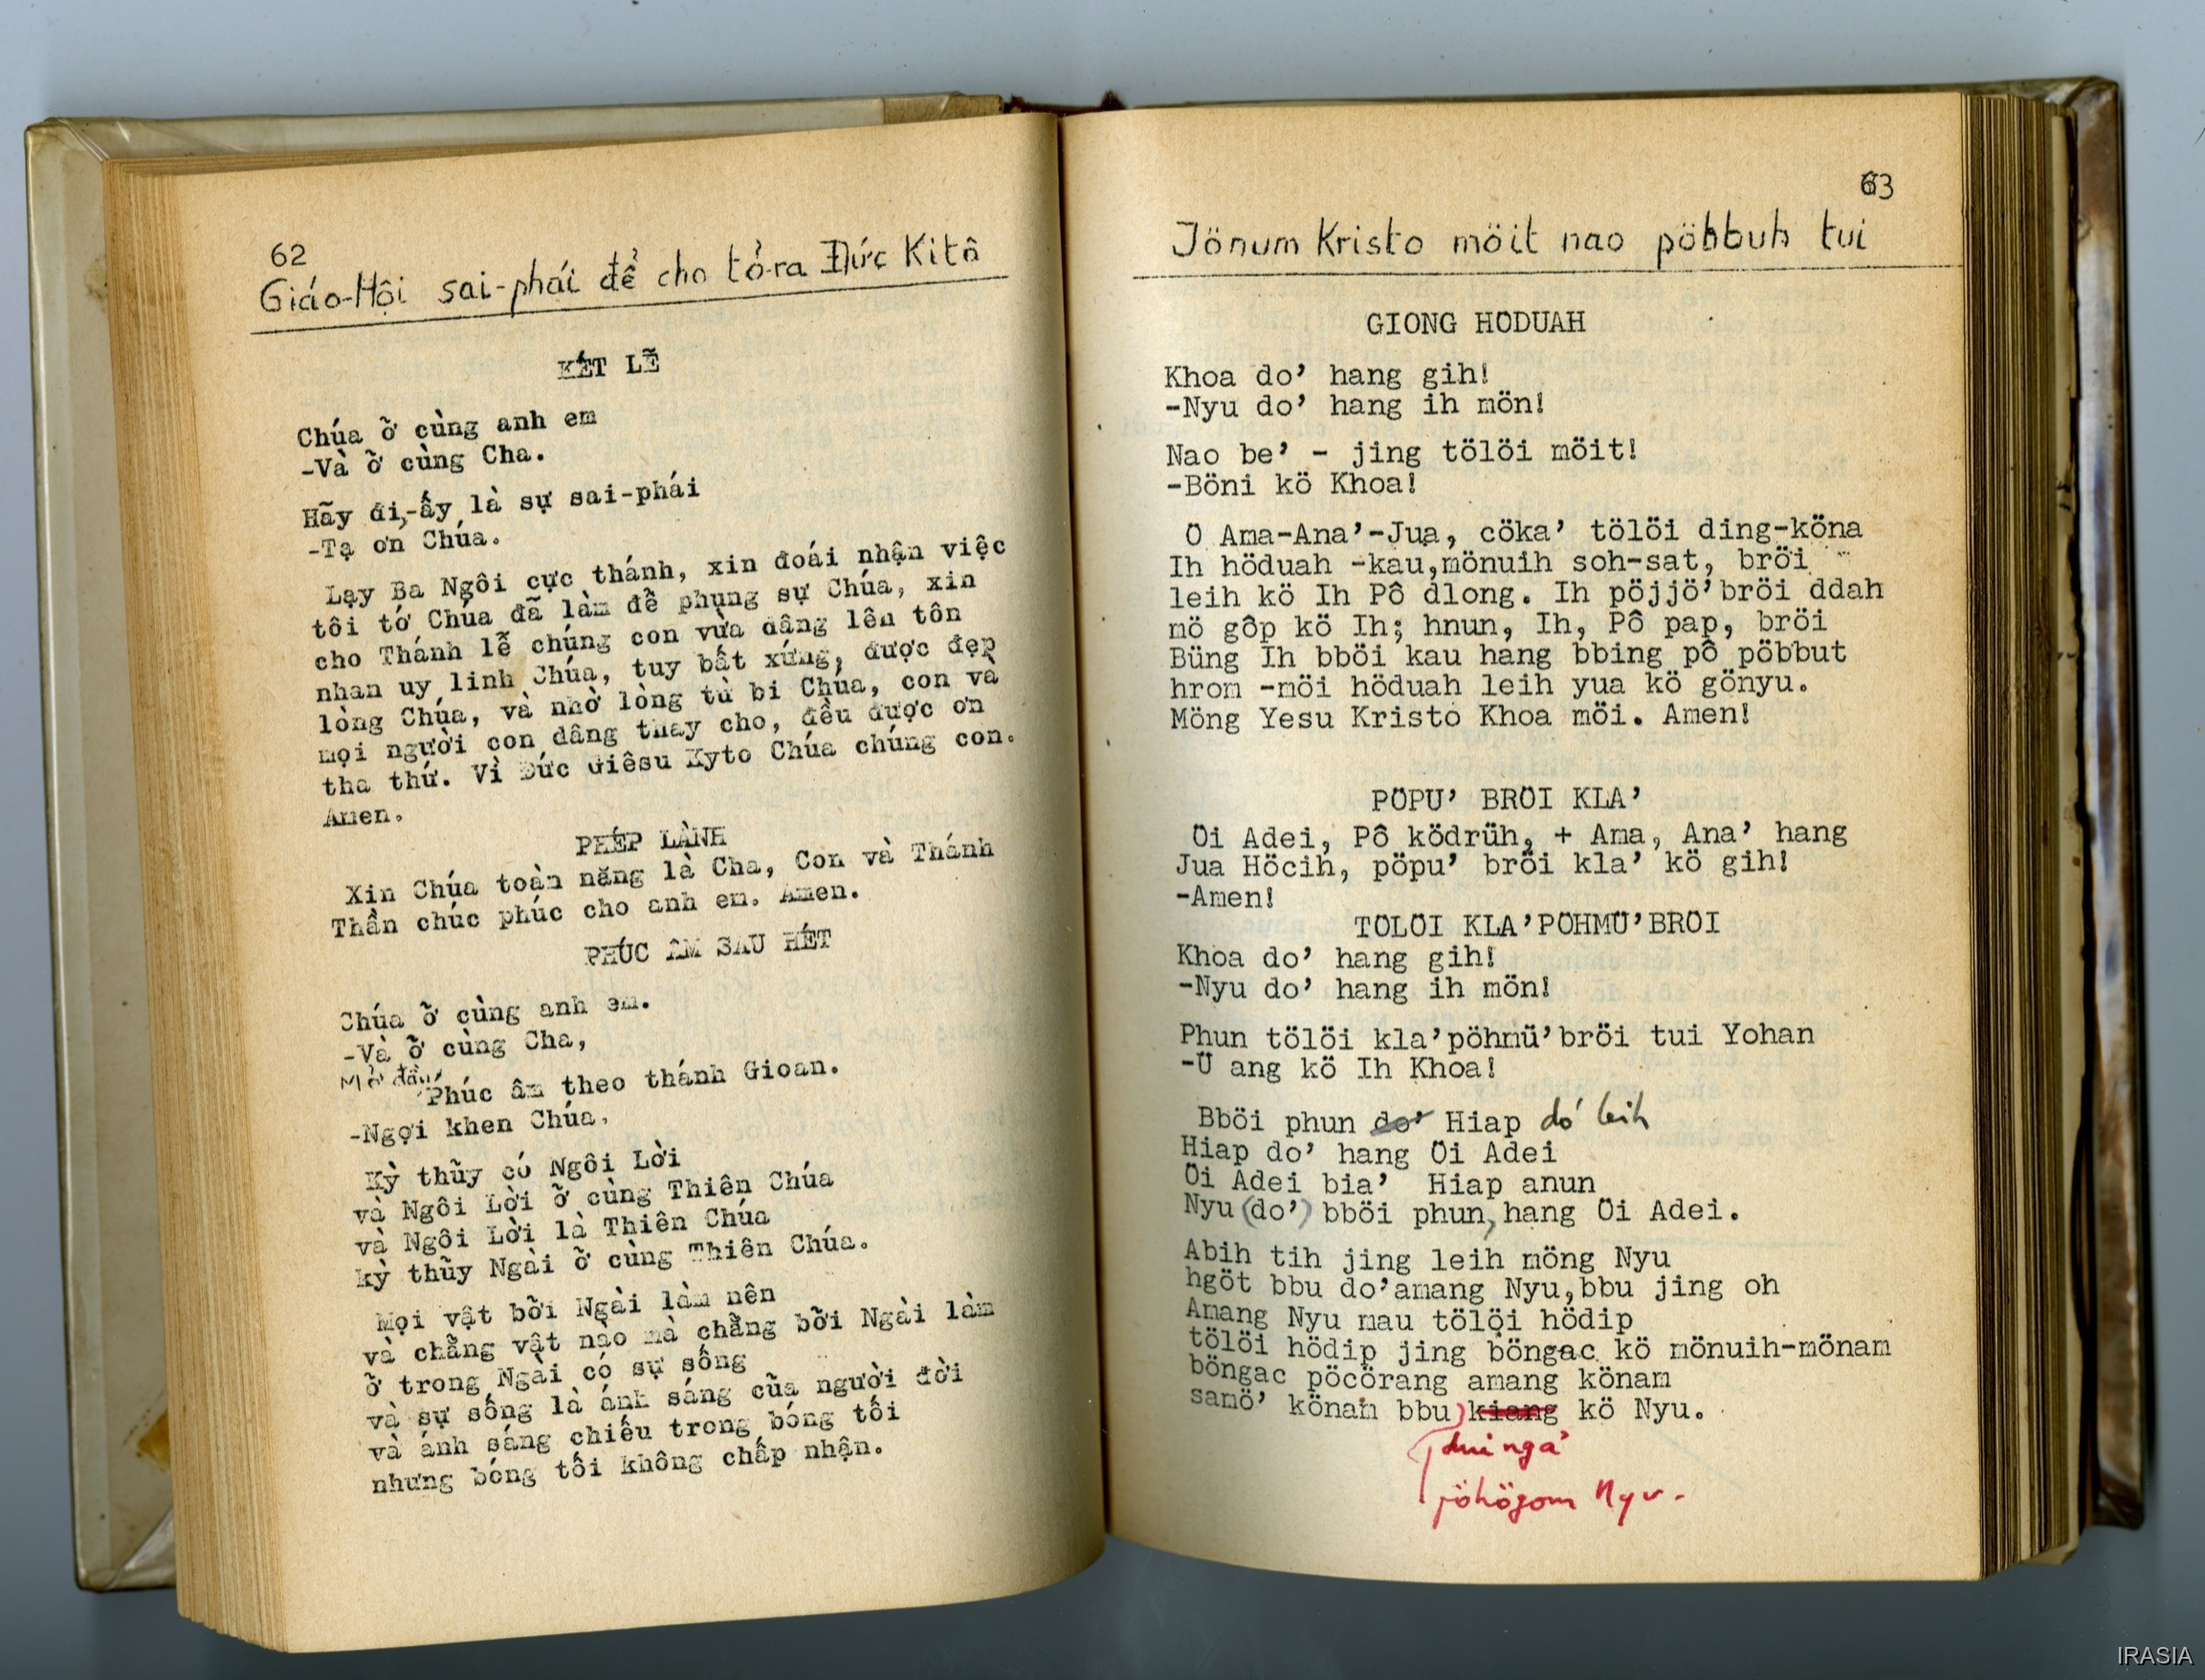 62
Giáo-Hội sai-phái để cho tỏ-ra Đức Kitô
KẾT LỄ
Chúa ở cùng anh em
-Và ở cùng Cha.
Hãy đi,-ấy là sự sai-phái
-Tạ ơn Chúa.
Lạy Ba Ngôi cực thánh, xin đoái nhận việc
tôi tớ Chúa đã làm để phụng sự Chúa, xin
cho Thánh lễ chúng con vừa dâng lên tôn
nhan uy linh Chúa, tuy bất xứng, được đẹp
lòng Chúa, và nhờ lòng từ bi Chúa, con và
mọi người con dâng thay cho, đều được ơn
tha thứ. Vì Đức Giêsu Kyto Chúa chúng con.
Amen.
PHÉP LÀNH
Xin Chúa toàn năng là Cha, Con và Thánh
Thần chúc phúc cho anh em. Amen.
PHÚC ÂM SAU HẾT
Chúa ở cùng anh em.
-Và ở cùng Cha,
Mở đầu Phúc âm theo thánh Gioan.
-Ngợi khen Chúa,
Kỳ thủy có Ngôi Lời
và Ngôi Lời ở cùng Thiên Chúa
và Ngôi Lời là Thiên Chúa
kỳ thủy Ngài ở cùng Thiên Chúa.
Mọi vật bởi Ngài làm nên
và chẳng vật nào mà chẳng bởi Ngài làm
ở trong Ngài có sự sống
và sự sống là ánh sáng của người đời
và ánh sáng chiếu trong bóng tối
nhưng bóng tối không chấp nhận.
63
Jönum Kristo möit nao pöbbuh tui
GIONG HÖDUAH
Khoa do' hang gih!
-Nyu do' hang ih mön!
Nao be' - jing tölöi möit!
-Böni kö Khoa!
Ö Ama-Ana'-Jua, cöka' tölöi ding-köna
Ih höduah -kau,mönuih soh-sat, bröi
leih kö Ih Pô dlong. Ih pöjjö'bröi ddah
mö gôp kö Ih; hnun, Ih, Pô pap, bröi
Büng Ih bböi kau hang bbing pô pöbbut
hrom -möi höduah leih yua kö gönyu.
Möng Yesu Kristo Khoa möi. Amen!
PÖPU' BRÖI KLA'
Öi Adei, Pô ködrüh, + Ama, Ana' hang
Jua Höcih, pöpu' bröi kla' kö gih!
-Amen!
TÖLÖI KLA'PÖHMÜ'BRÖI
Khoa do' hang gih!
-Nyu do' hang ih mön!
Phun tölöi kla'pöhmü'bröi tui Yohan
-Ü ang kö Ih Khoa!
Bböi phun do' Hiap dó leih
Hiap do' hang Öi Adei
Öi Adei bia' Hiap anun
Nyu (do') bböi phun, hang Öi Adei.
Abih tih jing leih möng Nyu
hgöt bbu do'amang Nyu,bbu jing oh
Amang Nyu mau tölöi hödip
tölöi hödip jing böngac kö mönuih-mönam
böngac pöcörang amang könam
samö' könam bbu) kiang kö Nyu.
jöhögom Nyu.
IRASIA